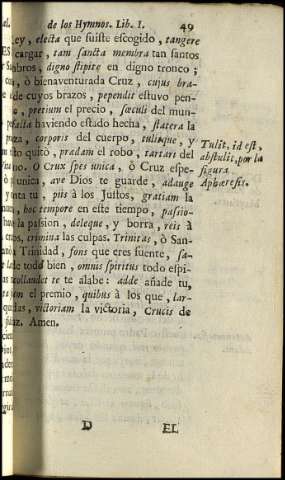 de los Hymnos. Lib. I. 49
Rey, electa que fuiste escogido, tangere
cargar, tam sancta membra tan santos
miembros, digno stipite en digno tronco;
ò bienaventurada Cruz, cujus bra-
de cuyos brazos, pependit estuvo pen-
pretium el precio, sæculi del mun-
facta haviendo estado hecha, statera la
corporis del cuerpo, tulitque, y
quitò, prædam el robo, tartari del
O Crux spes unica, ò Cruz espe-
unica, ave Dios te guarde, adauge
aumenta tu, piis à los Justos, gratiam la
hoc tempore en este tiempo, passio-
la passion, deleque, y borra, reis à
crimina las culpas. Trinitas, ò San-
Trinidad, fons que eres fuente, sa-
de todo bien, omnis spiritus todo espi-
collaudet te te alabe: adde añade tu,
el premio, quibus à los que, lar-
victoriam la victoria, Crucis de
Amen.
Tulit, id est,
abstulit, por la
figura
Aphæresis.
D EL